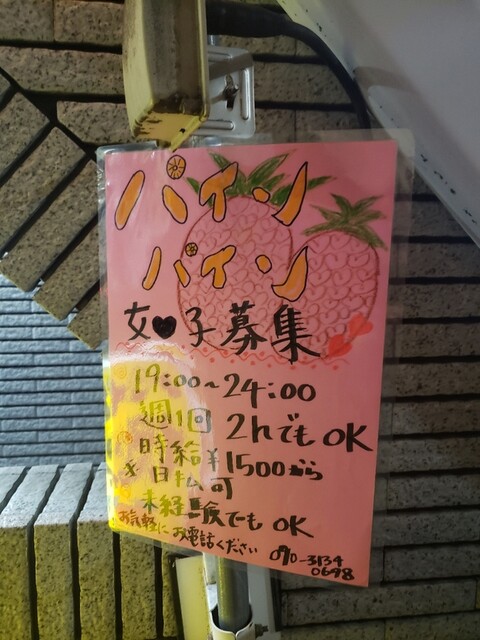 パイン
パイン
女♥子募集
19:00~24:00
週1回 2hでもOK
時給¥1500から
※日払可
未経験でも OK
お気軽にお電話ください 090-3134
0698